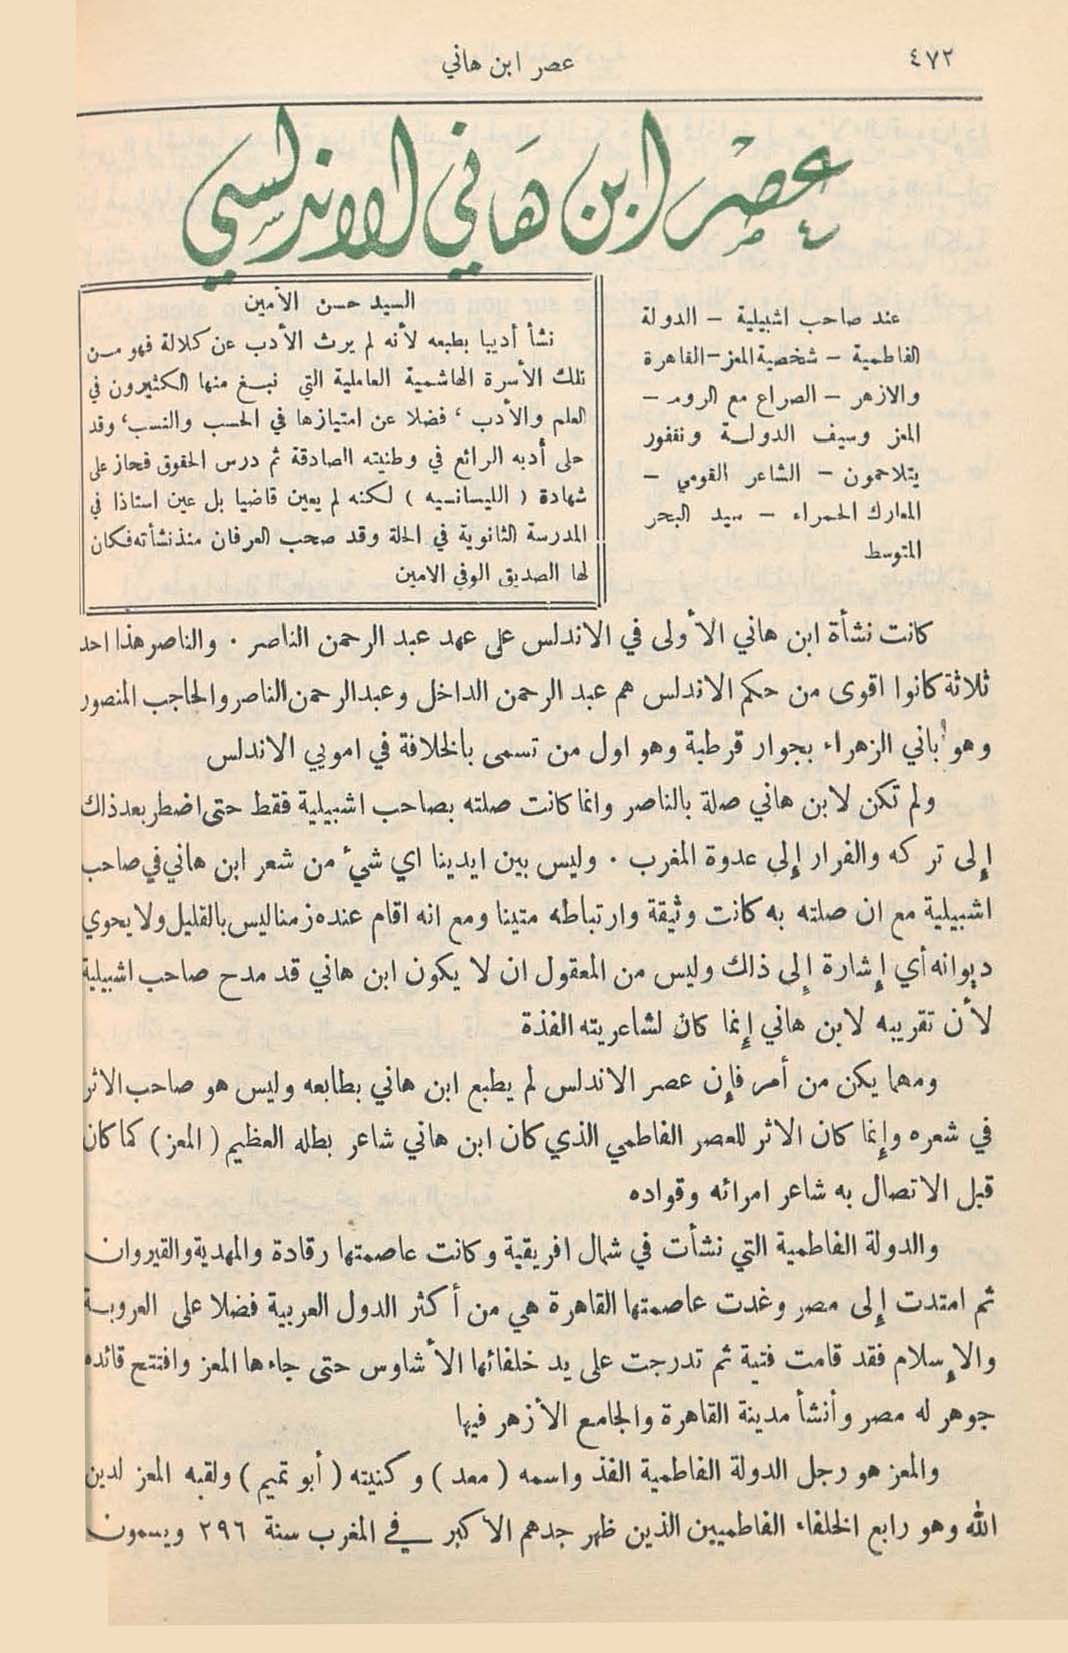 ٤٧٢
عصر ابن هاني
عصر ابن هاني الاندلسي
عند صاحب اشبيلية – الدولة
الفاطمية – شخصية المعز – القاهرة
والازهر – الصراع مع الروم –
المعز وسيف الدولة ونقفور
يتلاحمون – الشاعر القومي –
المعارك الحمراء – سيد البحر
المتوسط
السيد حسن الأمين
نشأ أديبا بطبعه لأنه لم يرث الأدب عن كلالة فهو من
تلك الأسرة الهاشمية العاملية التي نبغ منها الكثيرون في
العلم والأدب ، فضلا عن امتيازها في الحسب والنسب ، وقد
حلى أدبه الرائع في وطنيته الصادقة ثم درس الحقوق فحاز على
شهادة ( الليسانسيه ) لكنه لم يعين قاضيا بل عين استاذا في
المدرسة الثانوية في الحلة وقد صحب العرفان منذ نشأته فكان
لها الصديق الوفي الامين
كانت نشأة ابن هاني الأولى في الاندلس على عهد عبد الرحمن الناصر . والناصر هذا احد
ثلاثة كانوا اقوى من حكم الاندلس هم عبد الرحمن الداخل وعبد الرحمن الناصر والحاجب المنصور
وهو باني الزهراء بجوار قرطبة وهو اول من تسمى بالخلافة في امويي الاندلس
ولم تكن لابن هاني صلة بالناصر وانما كانت صلته بصاحب اشبيلية فقط حتى اضطر بعد ذاك
إلى تركه والفرار إلى عدوة المغرب . وليس بين ايدينا اي شيء من شعر ابن هاني في صاحب
اشبيلية مع ان صلته به كانت وثيقة وارتباطه متينا ومع انه اقام عنده زمنا ليس بالقليل ولا يحوي
ديوانه أي إشارة إلى ذاك وليس من المعقول ان لا يكون ابن هاني قد مدح صاحب اشبيلية
لأن تقريبه لابن هاني إنما كان لشاعريته الفذة
ومهما يكن من أمر فإن عصر الاندلس لم يطبع ابن هاني بطابعه وليس هو صاحب الاثر
في شعره وإنما كان الاثر للعصر الفاطمي الذي كان ابن هاني شاعر بطله العظيم ( المعز ) كما كان
قبل الاتصال به شاعر امرائه وقواده
والدولة الفاطمية التي نشأت في شمال افريقية وكانت عاصمتها رقادة والمهدية والقيروان
ثم امتدت إلى مصر وغدت عاصمتها القاهرة هي من أكثر الدول العربية فضلا على العروبة
والإسلام فقد قامت فتية ثم تدرجت على يد خلفائها الأشاوس حتى جاءها المعز وافتتح قائده
جوهر له مصر وأنشأ مدينة القاهرة والجامع الأزهر فيها
والمعز هو رجل الدولة الفاطمية الفذ واسمه ( معد ) وكنيته ( أبو تميم ) ولقبه المعز لدين
الله وهو رابع الخلفاء الفاطميين الذين ظهر جدهم الأكبر في المغرب سنة ٢٩٦ ويسمون